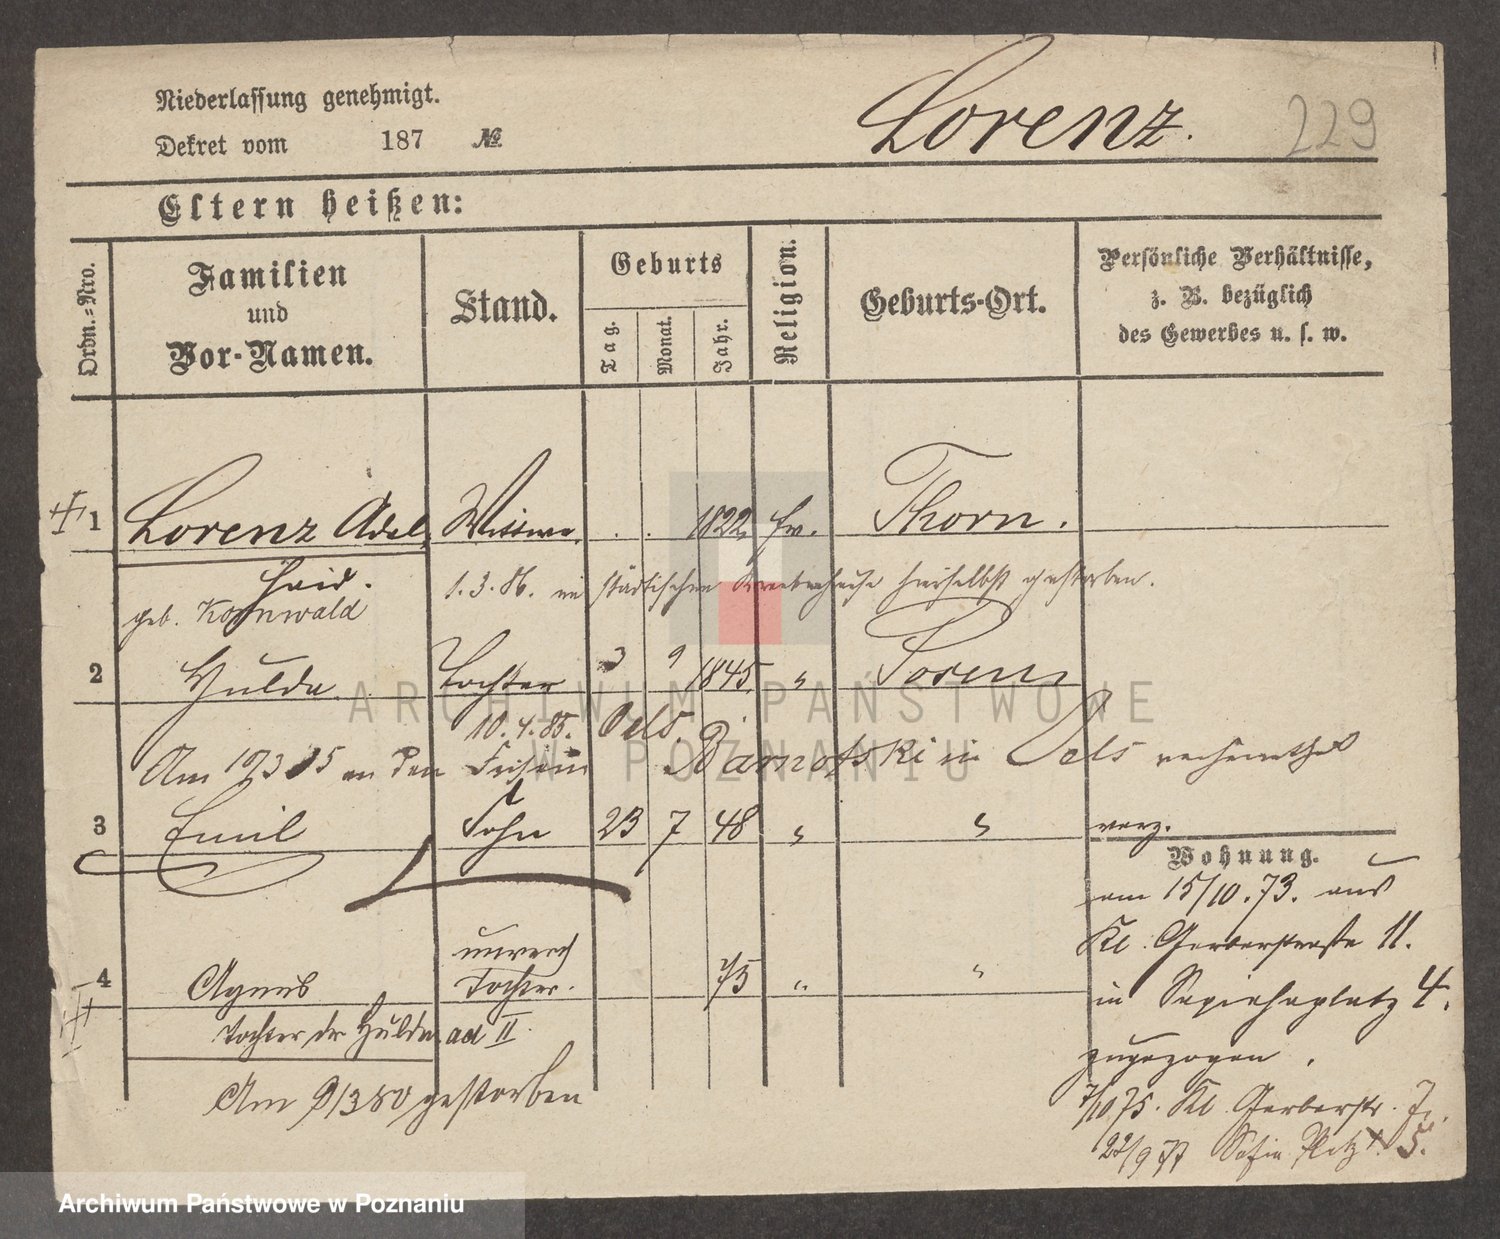 Niederlassung genehmigt.
Dekret vom 187 №
Lorenz.
229
Eltern heißen:
Ordn.-Nro.
Familien
und
Vor-Namen.
Stand.
Geburts
Tag.
Monat.
Jahr.
Religion.
Geburts-Ort.
Persönliche Verhältnisse,
z. B. bezüglich
des Gewerbes u. s. w.
1 Lorenz Adel. Wittwe . . 1822 Thorn.
1.3.86. im städtischen Krankenhause hierselbst gestorben.
geb. Kornwald
2 Hulda Tochter 3 9 1845 " Posen
10.4.85. Oels.
Am in Oels verheirathet
3 Emil Sohn 23 7 48 " " verz.
Wohnung.
am 15/10.73. aus
Kl. Gerberstraße 11.
in Sapiehaplatz 4.
zugezogen.
4 Agnes unverh Tochter. 73 " "
Tochter der Hulda ad II.
Am 9/3 80 gestorben
7/10 75. Kl. Gerberstr. 7.
22/9 77 Platz 5.
ARCHIWUM PAŃSTWOWE
W POZNANIU
Archiwum Państwowe w Poznaniu